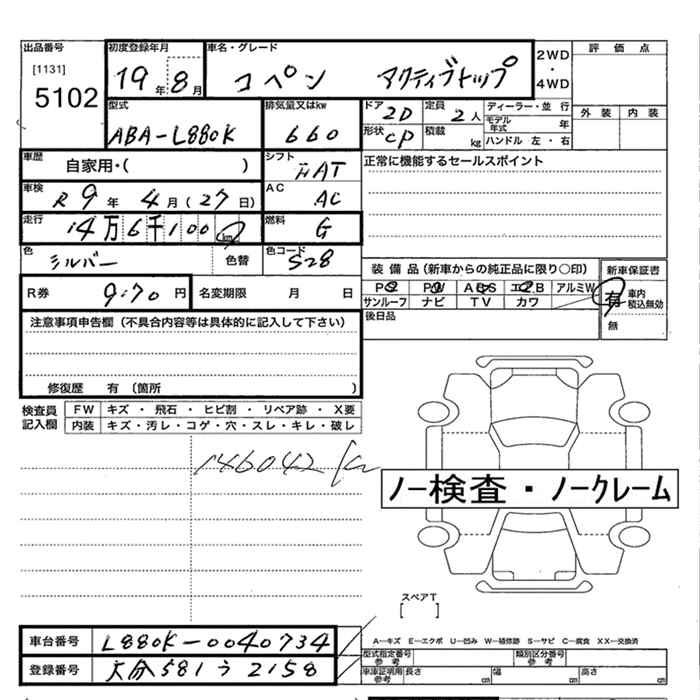 出品番号
[1131]
5102
初度登録年月
19年8月
車名・グレード
コペン アクティブトップ
2WD
・
4WD
評価点
外装 内装
型式
ABA-L880K
排気量又はkw
660
ドア 2D
形状 CP
定員 2人
積載 kg
ディーラー・並行
モデル年式 年
ハンドル 左・右
車歴
自家用・( )
シフト
AT
正常に機能するセールスポイント
車検
R9年4月(27日)
AC
AC
走行
14万6千100 km
燃料
G
色
シルバー 色替
色コード
S28
R券 9,170円
名変期限 月 日
装備品(新車からの純正品に限り○印)
PS PW ABS エアB アルミW
サンルーフ ナビ TV カワ
後日品
新車保証書
有 車内積込無効
無
注意事項申告欄(不具合内容等は具体的に記入して下さい)
修復歴 有(箇所 )
検査員記入欄
FW キズ・飛石・ヒビ割・リペア跡・X要
内装 キズ・汚レ・コゲ・穴・スレ・キレ・破レ
146042 km
ノー検査・ノークレーム
スペアT
[ ]
A―キズ E―エクボ U―凹み W―補修跡 S―サビ C―腐食 XX―交換済
車台番号 L880K-0040734
登録番号 大分581う2158
型式指定番号 参考
類別区分番号 参考
車庫証明用 参考
長さ cm 幅 cm 高さ cm